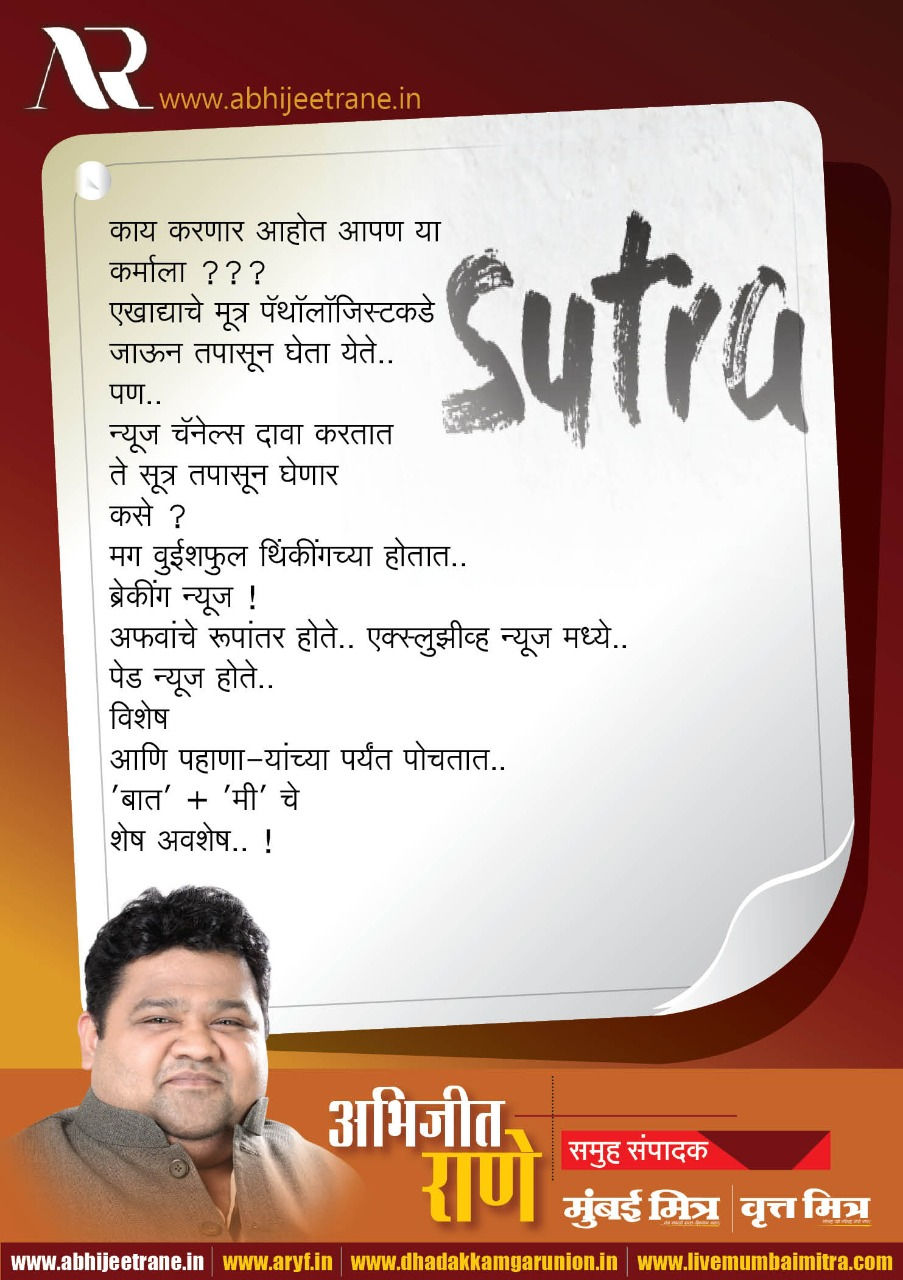 AR
www.abhijeetrane.in
Sutra
काय करणार आहोत आपण या
कर्माला ???
एखाद्याचे मूत्र पॅथॉलॉजिस्टकडे
जाऊन तपासून घेता येते..
पण..
न्यूज चॅनेल्स दावा करतात
ते सूत्र तपासून घेणार
कसे ?
मग वुईशफुल थिंकींगच्या होतात..
ब्रेकींग न्यूज !
अफवांचे रूपांतर होते.. एक्स्लुझीव्ह न्यूज मध्ये..
पेड न्यूज होते..
विशेष
आणि पहाणा-यांच्या पर्यंत पोचतात..
'बात' + 'मी' चे
शेष अवशेष.. !
अभिजीत
राणे
समुह संपादक
मुंबई मित्र | वृत्त मित्र
www.abhijeetrane.in | www.aryf.in | www.dhadakkamgarunion.in | www.livemumbaimitra.com